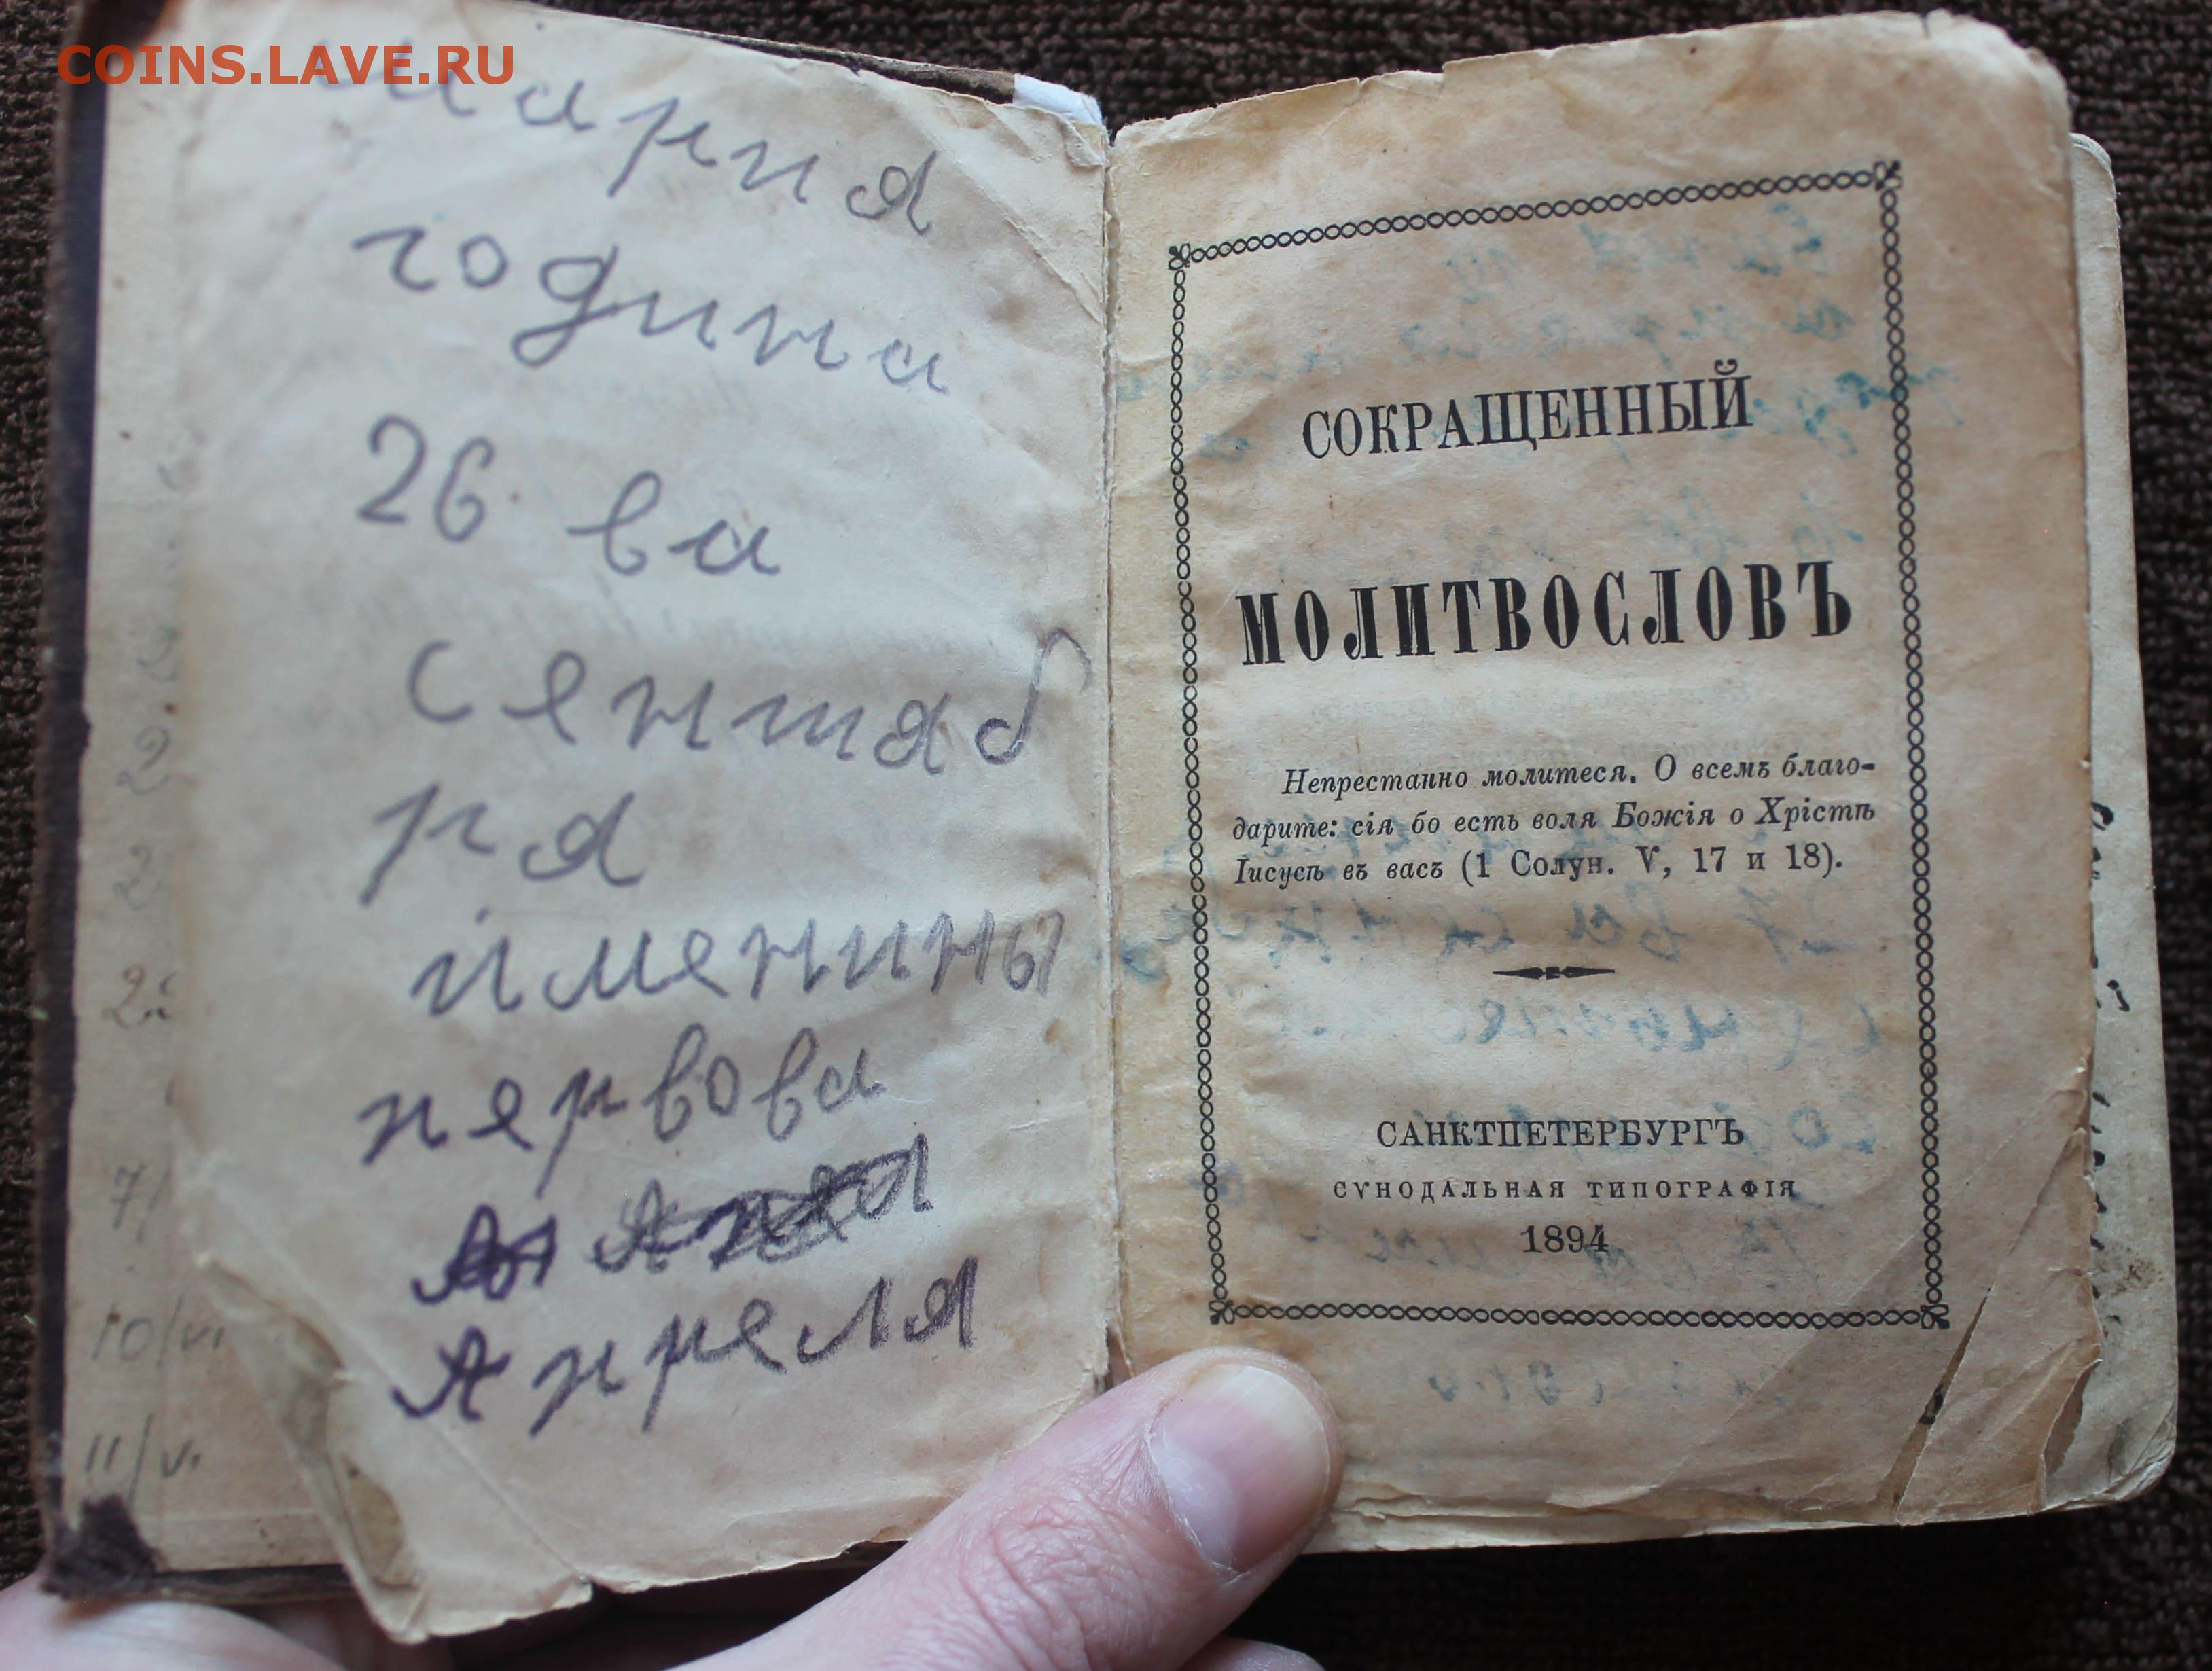 COINS.LAVE.RU
мария
година
26 ва
сентяб
ря
именины
первова
Апреля
2
2
10/VI
11/V.
СОКРАЩЕННЫЙ
МОЛИТВОСЛОВЪ
Непрестанно молитеся. О всемъ благо-
дарите: сія бо есть воля Божія о Хрістѣ
Іисусѣ въ васъ (1 Солун. V, 17 и 18).
САНКТПЕТЕРБУРГЪ
СѴНОДАЛЬНАЯ ТИПОГРАФІЯ
1894